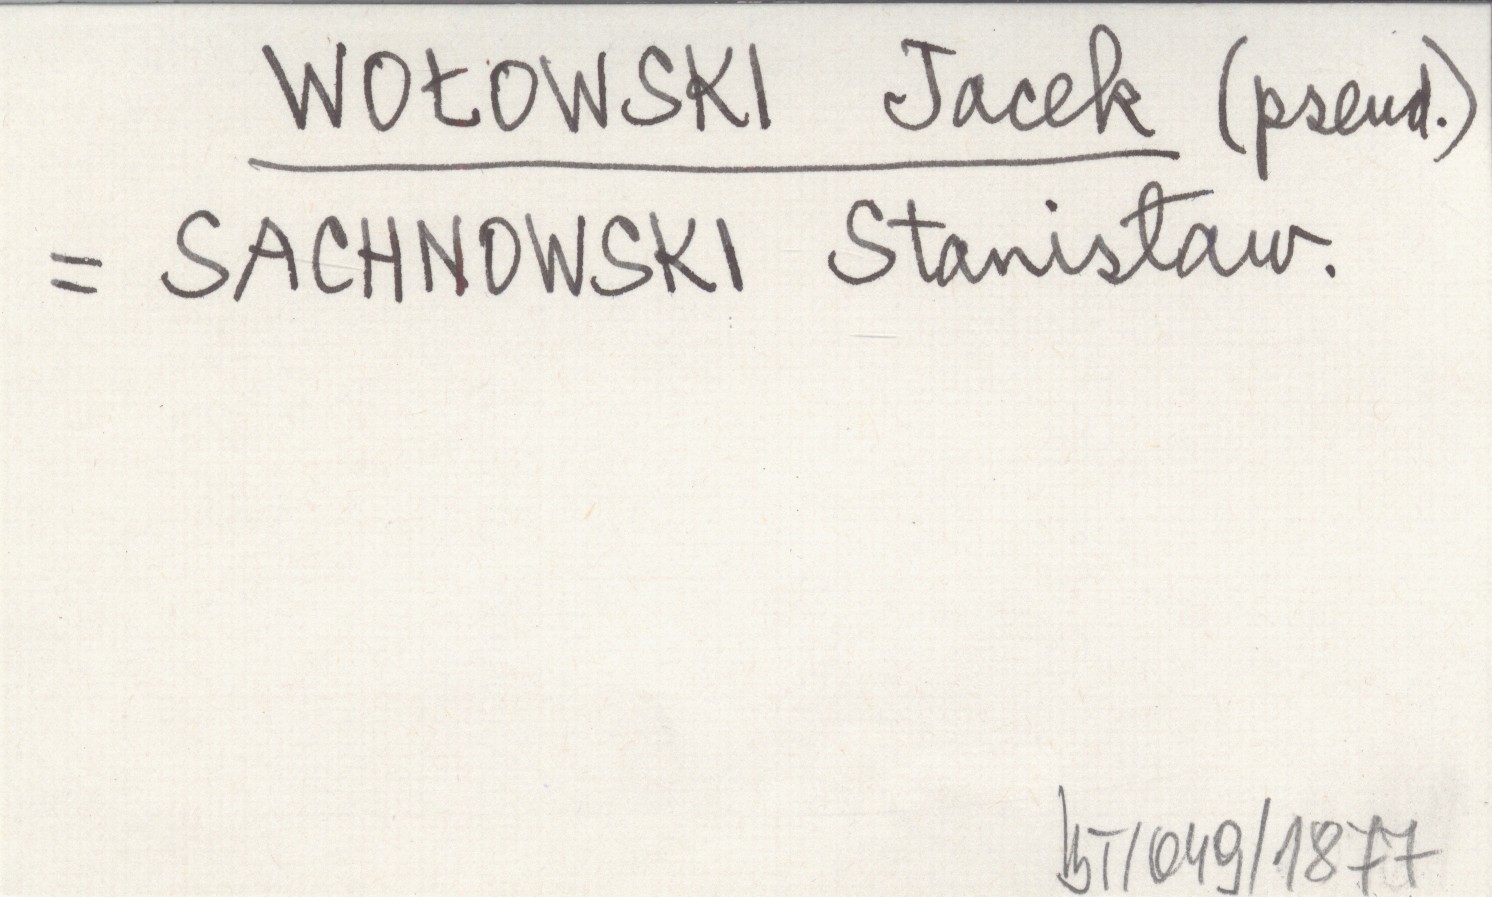 WOŁOWSKI Jacek (pseud.)
= SACHNOWSKI Stanisław.
BT/049/1877